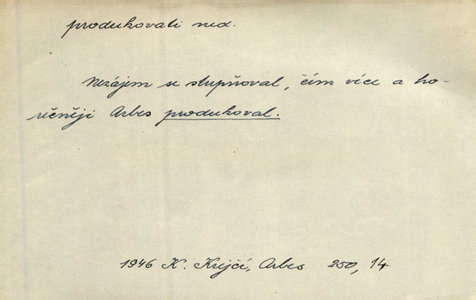 produkovati ned.
Nezájem se stupňoval, čím více a ho-
rečněji Arbes produkoval.
1946 K. Krejčí, Arbes 250, 14